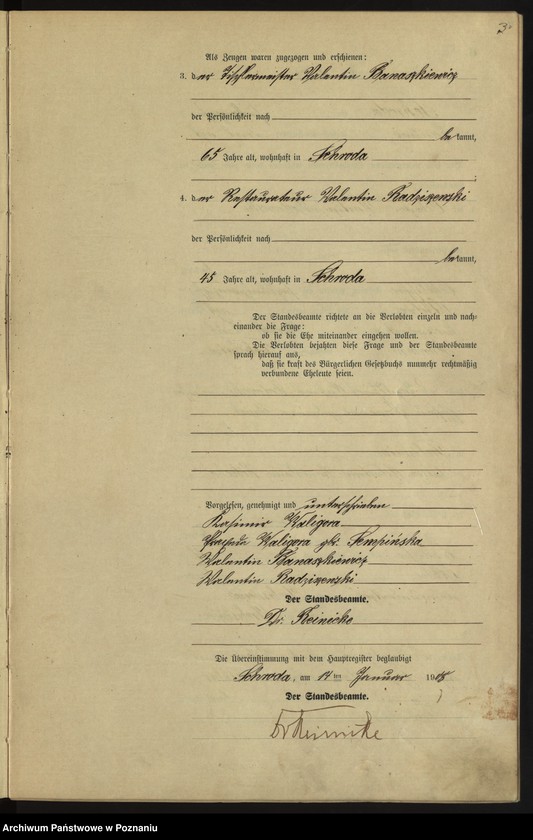 3.
Als Zeugen waren zugezogen und erschienen:
3. der Tischlermeister Valentin Banaszkiewicz
der Persönlichkeit nach
bekannt,
65 Jahre alt, wohnhaft in Schroda
4. der Restaurateur Valentin Radziszewski
der Persönlichkeit nach
bekannt,
45 Jahre alt, wohnhaft in Schroda
Der Standesbeamte richtete an die Verlobten einzeln und nach-
einander die Frage:
ob sie die Ehe miteinander eingehen wollen.
Die Verlobten bejahten diese Frage und der Standesbeamte
sprach hierauf aus,
daß sie kraft des Bürgerlichen Gesetzbuchs nunmehr rechtmäßig
verbundene Eheleute seien.
Vorgelesen, genehmigt und unterschrieben
Kasimir Waligora
Waligora geb. Tempińska
Valentin Banaszkiewicz
Valentin Radziszewski
Der Standesbeamte.
Dr. Reinicke
Die Übereinstimmung mit dem Hauptregister beglaubigt
Schroda, am 14ten Januar 1918
Der Standesbeamte.
Dr Reinicke
Archiwum Państwowe w Poznaniu